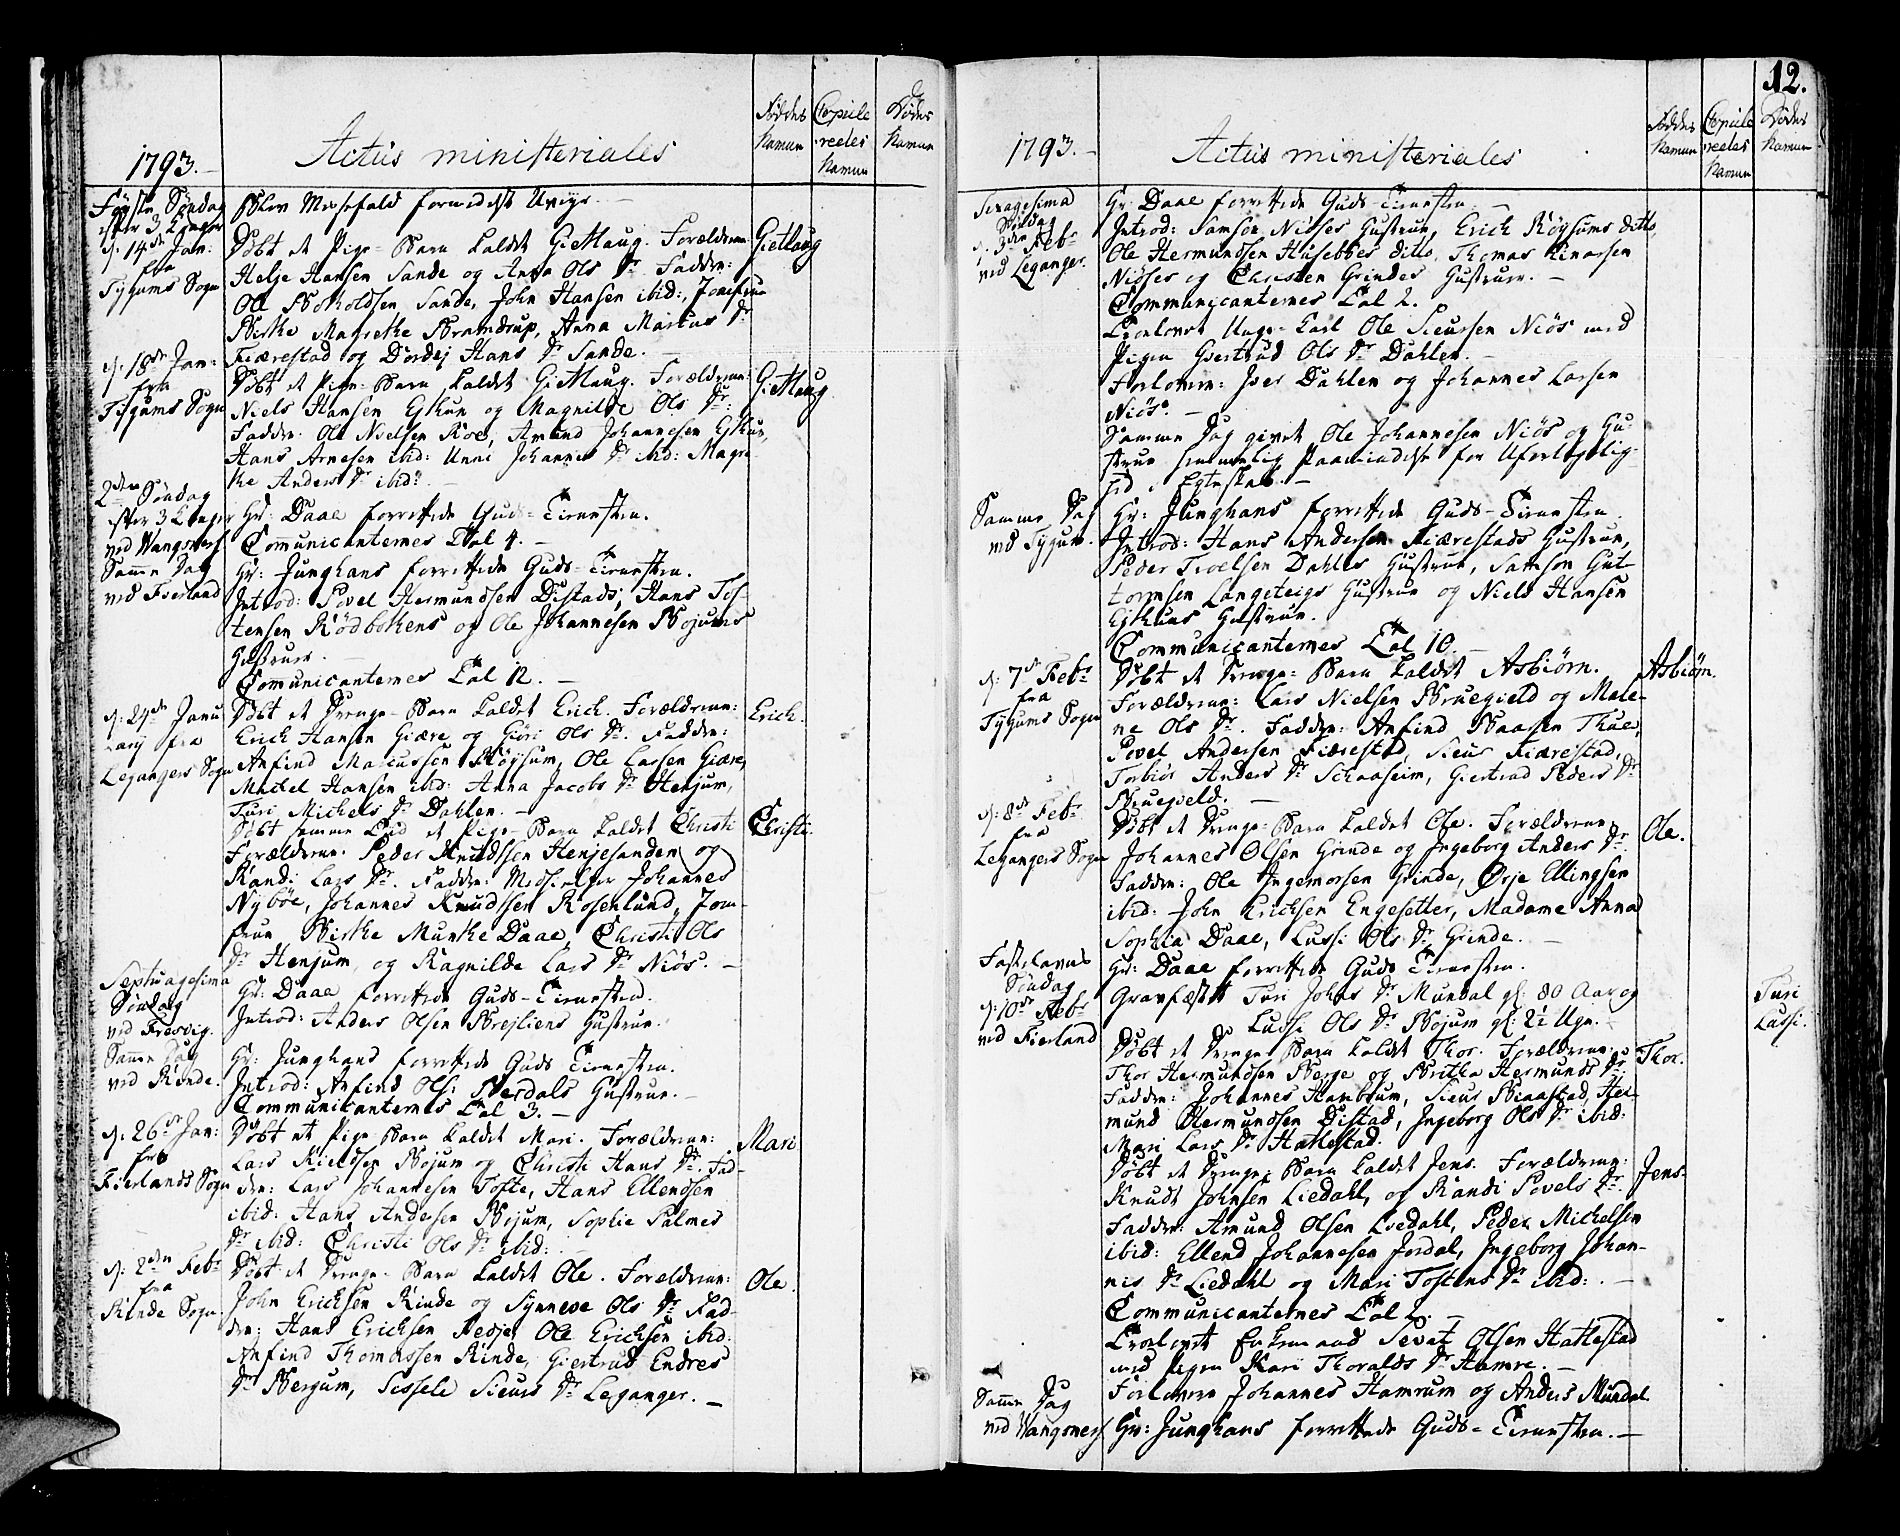 1793.
Actus ministeriales
Føddes Namen
Copuleredes Namen
Dødes Namen
Første Søndag
efter 3 Konger
Blev Messefald formedelst Uveyr.
d: 14de Jan:
fra
Tygums Sogn
Døbt et Pige-Barn kaldet Giertlaug. Forældrene:
Giertlaug
Helje Hansen Sande og Anna Ols Dr. Fadder:
Ole Botholdsen Sande, John Hansen ibid:, Jomfrue
Birthe Magrethe Bramdrup, Anna Markus Dr
Fiærestad og Dordej Hans Dr Sande.
d: 18de Jan:
fra
Tygums Sogn
Døbt et Pige-Barn kaldet Giertlaug. Forældrene:
Giertlaug
Niels Hansen Eskun og Magnilde Ols Dr.
Fadder: Ole Nielsen Roe, Amund Johannesen
Hans Arnesen ibid: Unni Johannis Dr ibid: Magre-
the Anders Dr ibid.
2den Søndag
efter 3 Konger
ved Wangsnes
Hr: Daae forrettede Guds-Tienesten.
Communicanternes Tal 4.
Samme Dag
ved Fierland
Hr: Junghans forrettede Guds-Tienesten.
Introd: Povel Hermundsen Distads, Hans Tos-
tensen Rødbøkens og Ole Johannesen Bojums
Hustruer.
Communicanternes Tal 12.
Janu
arij fra
Legangers Sogn
Døbt et Drenge-Barn kaldet Erich. Forældrene:
Erich.
Erich Hansen Giære og Giøri Ols Dr. Fadder:
Anfind Marcussen Røysum, Ole Larsen Giære,
Michel Hansen ibid: Anna Jacobs Dr Henjum,
Turi Michels Dr Dahlen.
Døbt samme Tid et Pige-Barn kaldet Christi
Christi.
Forældrene: Peder Knudssen Henjesanden og
Randi Lars Dr. Fadder: Johannes
Nybøe, Johannes Knudssen Rosenlund, Jom-
frue Birthe Munthe Daae, Christi Ols
Dr Henjum, og Ragnilde Lars Dr Niøs.
Septuagesima
Søndag
ved Fresvig.
Hr: Daae forrettede Guds-Tienesten.
Introd: Anders Olsen Brejliens Hustrue.
Samme Dag
ved Rinde.
Hr: Junghans forrettede Guds Tienesten.
Introd: Anfind Ols: Nerdals Hustrue.
Communicanternes Tal 3.
d: 26de Jan:
fra
Fierlands Sogn
Døbt et Pige-Barn kaldet Mari. Forældrene:
Mari
Lars Bojum og Christi Hans Dr. Fad-
der: Lars Johannesen Tofte, Hans Ellendsen
ibid: Hans Andersen Bojum, Sophie Salmes
Dr ibid: Christi Ols Dr ibid:
d: 2den Febr
fra
Rinde Sogn
Døbt et Drenge-Barn kaldet Ole. Forældrene:
Ole.
John Ericksen Rinde og Synneve Ols Dr. Fad-
der: Hans Ericksen Ole Ericksen ibid:
Anfind Thomassen Rinde, Giertrud Endres
Dr Bergum, Sissele Sieurs Dr Leganger.
12.
1793.
Actus ministeriales
Føddes Namen
Copuleredes Namen
Dødes Namen
Sexagesima
Søndag
d. 3den Febr
ved Leganger.
Hr: Daae forrettede Guds-Tienesten.
Introd: Samson Niøses Hustrue, Erich Røysums ditto,
Ole Hermundsen Husebbes ditto, Thomas
Niøses og Christen Grindes Hustruer.
Communicanternes Tal 2.
Trolovet Unge-Karl Ole Sieursen Niøs med
Pigen Giertrud Ols Dr Dahlen.
Forlovere: Iver Dahlen og Johannes Larsen
Niøs.
Samme Dag givet Ole Johannesen Niøs og Hu-
strue hemmelig Paamindelse for Uforligelig-
hed i Egteskab.
Samme Dag
ved Tygum.
Hr: Junghans forrettede Guds-Tienesten.
Introd: Hans Andersen Fiærestads Hustrue,
Peder Troelsen Dahles Hustrue, Samson Gut-
tormsen Langeteigs Hustrue og Niels Hansen
Hustrue.
Communicanternes Tal 10.
d: 7de Febr
fra
Tygums Sogn
Døbt et Drenge-Barn kaldet Asbiørn.
Asbiørn.
Forældrene: Lars Nielsen Bruegield og Male-
ne Ols Dr. Fadder: Anfind Baarsen Thue,
Povel Andersen Fiærestad, Sieur Fiærestad,
Torbiør Anders Dr Schaaseim, Giertrud Peders Dr
Bruegield.
d: 8de Febr
fra
Legangers Sogn
Døbt et Drenge-Barn kaldet Ole. Forældrene:
Ole.
Johannes Olsen Grinde og Ingeborg Anders Dr.
Fadder: Ole Ingemorsen Grinde, Ørje Ellingsen
ibid: John Ericksen Engesetter, Madame Anna
Sophia Daae, Lussi Ols Dr Grinde.
Fastelavns
Søndag
d: 10de Febr
ved Fierland
Hr: Daae forrettede Guds Tienesten.
Gravfæstet Turi Johns Dr Mundal gl: 80 Aar og
Turi
Lussi Ols Dr Bojum gl: 21 Uger.
Lussi.
Døbt et Drenge-Barn kaldet Thor. Forældrene:
Thor.
Thor Hermundsen Berge og Britha Hermunds Dr.
Fadder: Johannes Hambrum, Sieur Her-
mund Hermundsen Distad, Ingeborg Ols Dr ibid:
Mari Lars Dr Hatlestad.
Døbt et Drenge-Barn kaldet Jens. Forældrene:
Jens.
Knudt Johnsen Liedahl, og Randi Povels Dr.
Fadder: Amund Olsen Liedahl, Peder Michelsen
ibid: Ellend Johannesen Jordal, Ingeborg Johan-
nis Dr Liedahl og Mari Tostens Dr ibid:
Communicanternes Tal 2.
Trolovet Enkemand Sevat Olsen Hatlestad
med Pigen Kari Thoralds Dr Hamre.
Forlovere Johannes Hamrum og Anders Mundal.
Samme Dag
ved Wangsnes
Hr: Junghans forrettede Guds-Tienesten.